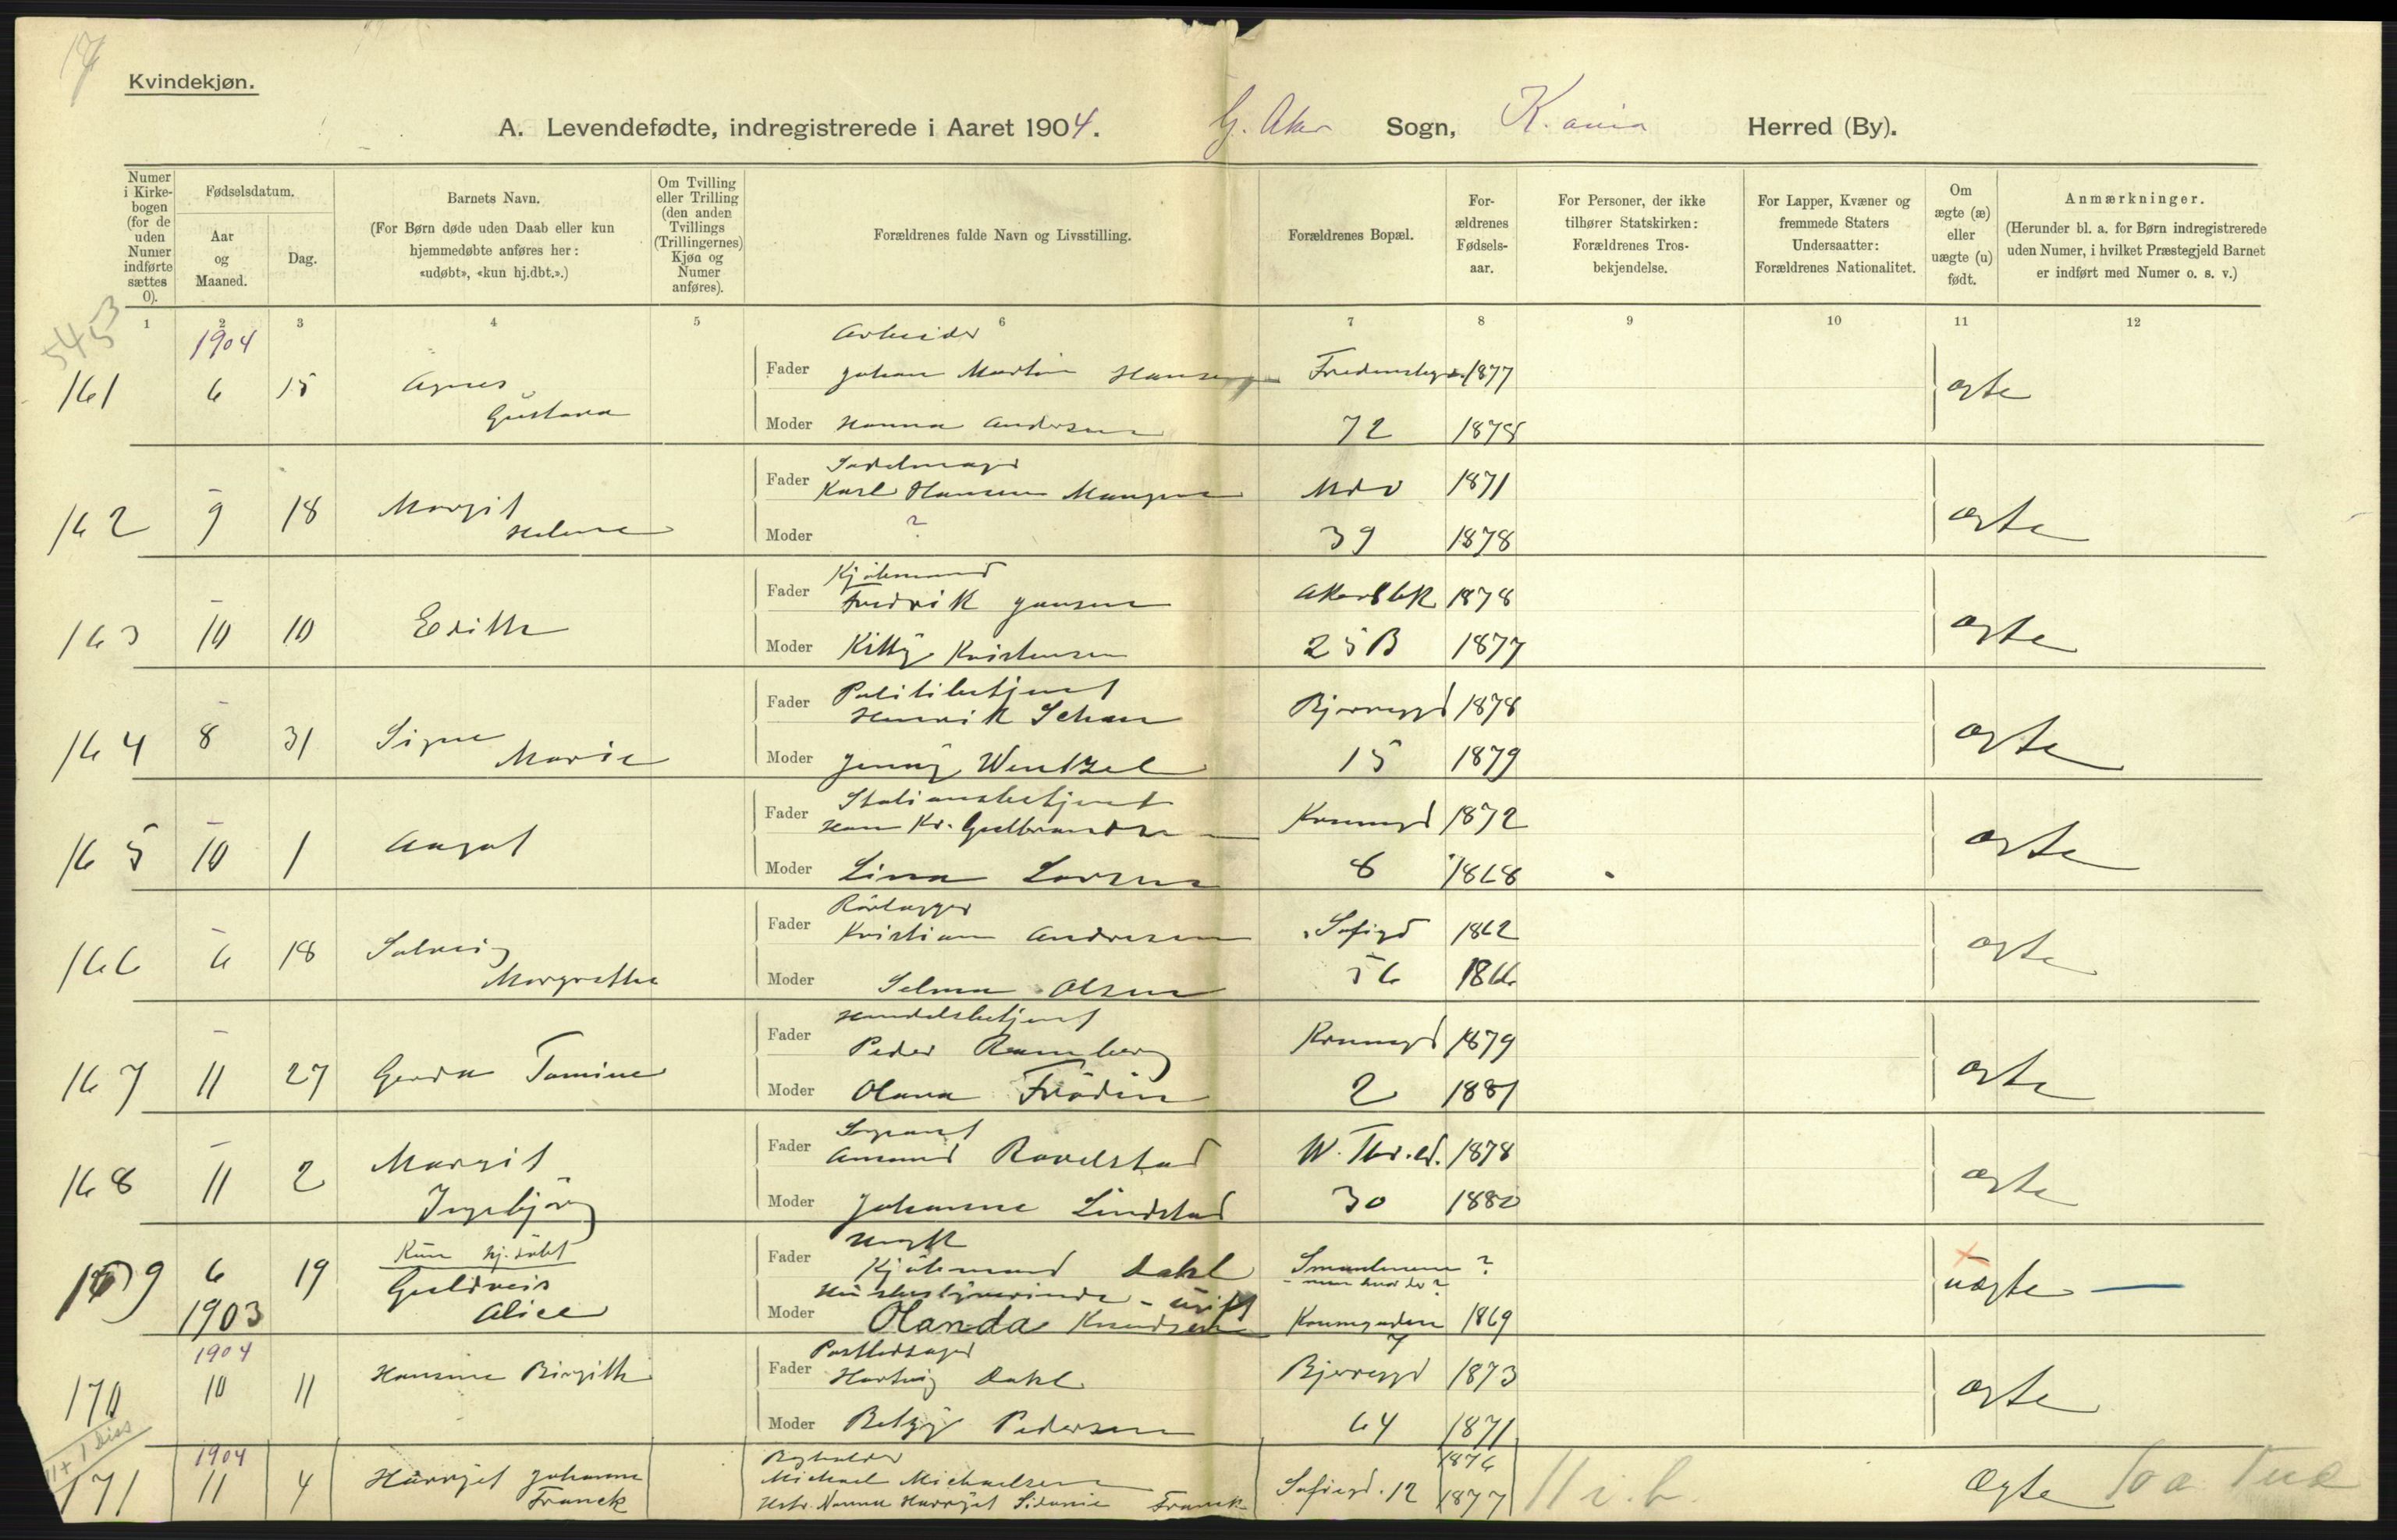 Kvindekjøn.
A. Levendefødte, indregistrerede i Aaret 1904. G. Aker Sogn, K.ania Herred (By).
Numer i Kirkebogen (for de uden Numer indførte sættes 0).
Fødselsdatum.
Aar og Maaned.
Dag.
Barnets Navn.
(For Børn døde uden Daab eller kun hjemmedøbte anføres her: «udøbt», «kun hj.dbt.».)
Om Tvilling eller Trilling (den anden Tvillings (Trillingernes) Kjøn og Numer anføres).
Forældrenes fulde Navn og Livsstilling.
Forældrenes Bopæl.
Forældrenes Fødselsaar.
For Personer, der ikke tilhører Statskirken: Forældrenes Trosbekjendelse.
For Lapper, Kvæner og fremmede Staters Undersaatter: Forældrenes Nationalitet.
Om ægte (æ) eller uægte (u) født.
Anmærkninger.
(Herunder bl. a. for Børn indregistrerede uden Numer, i hvilket Præstegjeld Barnet er indført med Numer o. s. v.)
1 2 3 4 5 6 7 8 9 10 11 12
1904
Arbeider
161 6 15 Agnes Gustava Fader Johan Martin Hansen 1877 ægte
Moder Hanna Andersen 72 1878
Sadelmager
162 - 9 18 Margit Helene Fader Karl Hansen 1871 ægte
Moder ? 39 1878
Kjøbmand
163 - 10 10 Edith Fader Fredrik Jansen Akersbk 1878 ægte
Moder Kitty Kristensen 25 B 1877
Politibetjent
164 - 8 31 Signe Marie Fader Henrik Schau Bjerregd 1878 ægte
Moder Jenny Wentzel 15 1879
Stationsbetjent
165 - 10 1 Aagot Fader Hans Kr. Gulbrandsen 1872 ægte
Moder Lina Larsen 8 1868
Rørlægger
166 - 6 18 Solveig Margrethe Fader Kristian Andresen Sofigd 1862 ægte
Moder Selma Olsen 56 1866
Handelsbetjent
167 - 11 27 Gerda Tomine Fader Peder Ramberg 1879 ægte
Moder Olava Frödin 2 1881
Sergeant
168 - 11 2 Margit Ingebjørg Fader Amund Ravelstad W. Thr. gd. 1878 ægte
Moder Johanne Lindstad 30 1880
Kun hj.døbt
169 6 19 Guldveis Alice Fader Kjøbmand Dahl ? uægte
1903 Moder ugift Olanda Knudsen 7 1869
1904
170 10 11 Hansine Birgitte Fader Hartvig Dahl Bjerregd 1873 ægte
Moder Betzy Pedersen 64 1871
11 + 1 diss
1904
171 11 4 Harriet Johanne Franck Michael Michaelsen Sofiegd. 12 1876 Ægte
Hstr. Nanna Harriet Sidonie Franck 1877